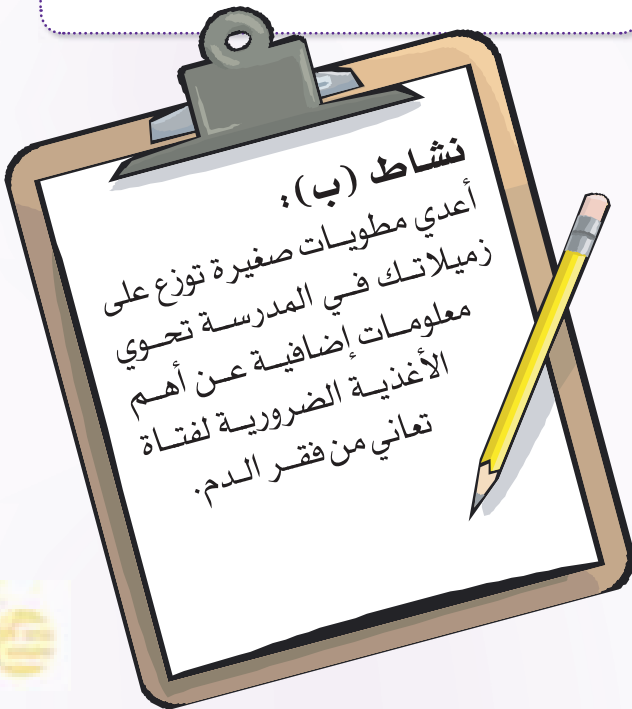 نشاط (ب):
أعدي مطويات صغيرة توزع على
زميلاتك في المدرسة تحوي
معلومات إضافية عن أهم
الأغذية الضرورية لفتاة
تعاني من فقر الدم.